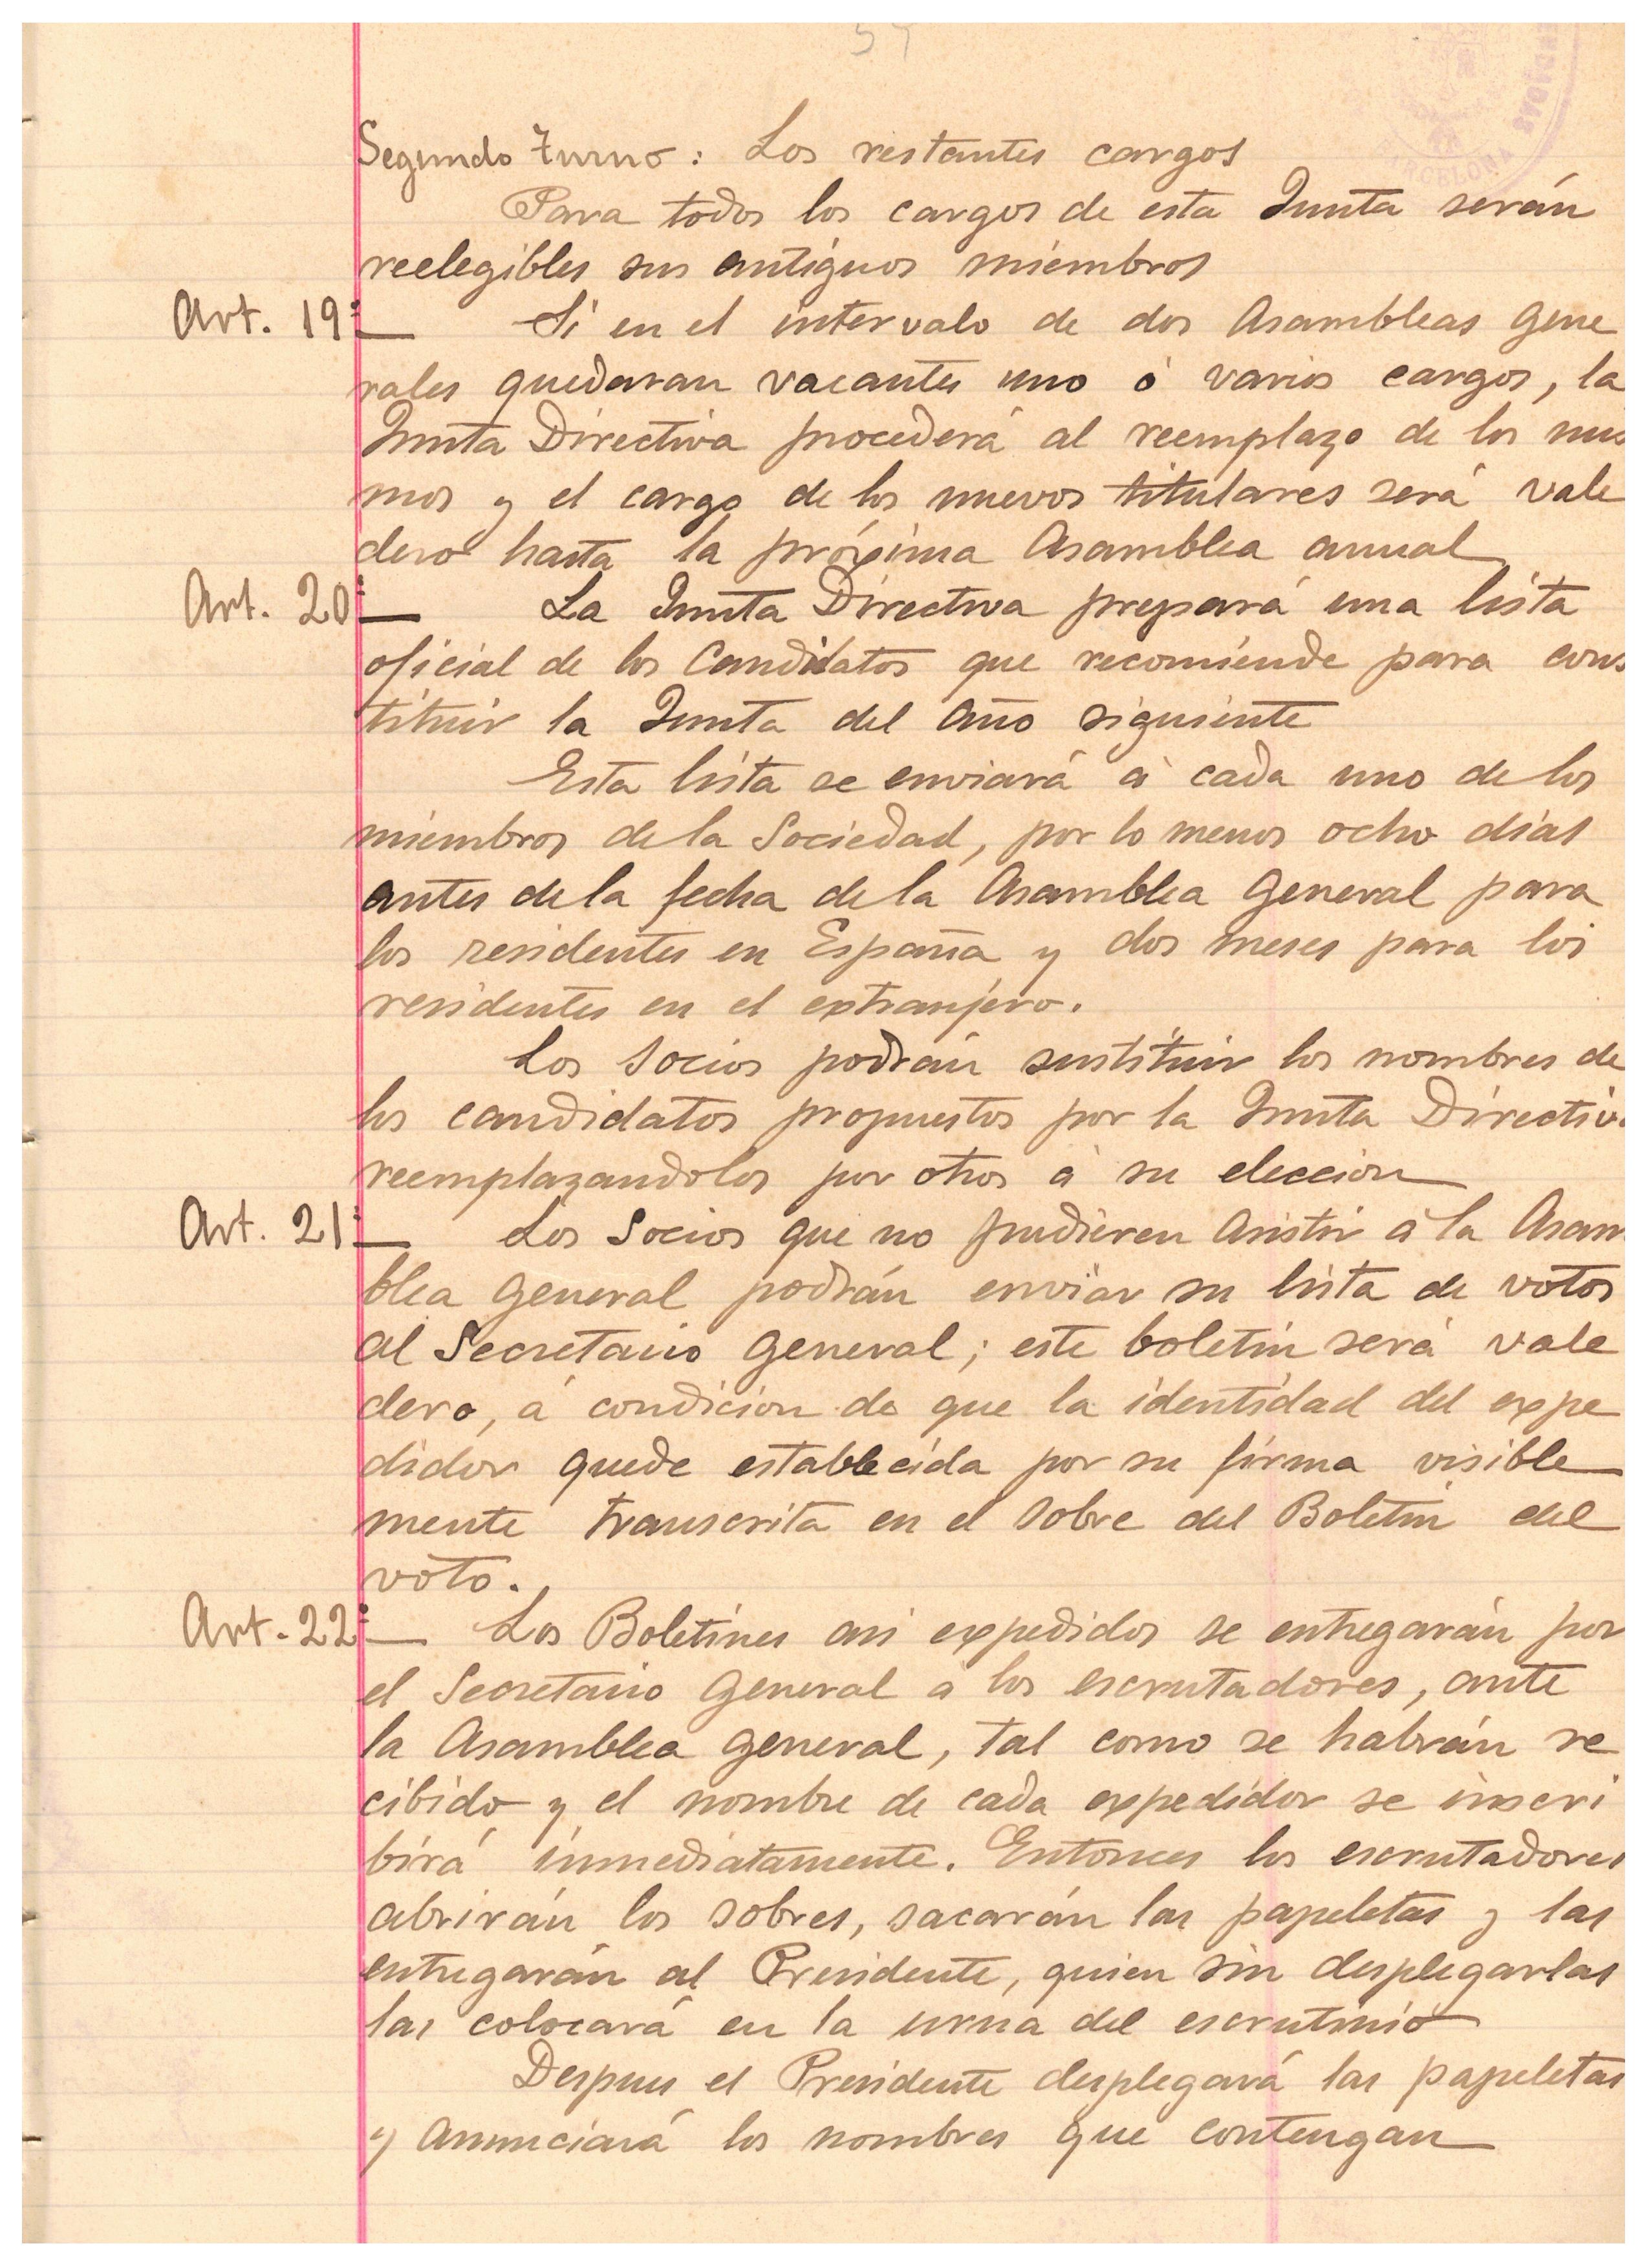 57
Segundo Turno: Los restantes cargos
Para todos los cargos de esta Junta serán
reelegibles sus antiguos miembros
Art. 19: Si en el intervalo de dos Asambleas Gene
rales quedaran vacantes uno ó varios cargos, la
Junta Directiva procederá al reemplazo de los mis
mos y el cargo de los nuevos titulares será vale
dero hasta la próxima Asamblea anual
Art. 20: La Junta Directiva prepará una lista
oficial de los Candidatos que recomiende para cons
tituir la Junta del año siguiente
Esta lista se enviará á cada uno de los
miembros de la Sociedad, por lo menos ocho dias
antes de la fecha de la Asamblea General para
los residentes en España y dos meses para los
residentes en el extranjero.
Los Socios podrán sustituir los nombres de
los candidatos propuestos por la Junta Directiv
reemplazandolos por otros á su eleccion
Art. 21: Los Socios que no pudieren asistir á la Asam
blea General podrán enviar su lista de votos
al Secretario General; este boletin será vale
dero, á condicion de que la identidad del expe
didor quede establecida por su firma visible
mente transcrita en el sobre del Boletin del
voto.
Art. 22: Los Boletines asi expedidos se entregarán por
el Secretario General a los escrutadores, ante
la Asamblea General, tal como se habrán re
cibido y el nombre de cada expedidor se inscri
birá inmediatamente. Entonces los escrutadores
abrirán los sobres, sacarán las papeletas y las
entregarán al Presidente, quien sin desplegarlas
las colocará en la urna del escrutinio
Despues el Presidente desplegará las papeletas
y anunciará los nombres que contengan